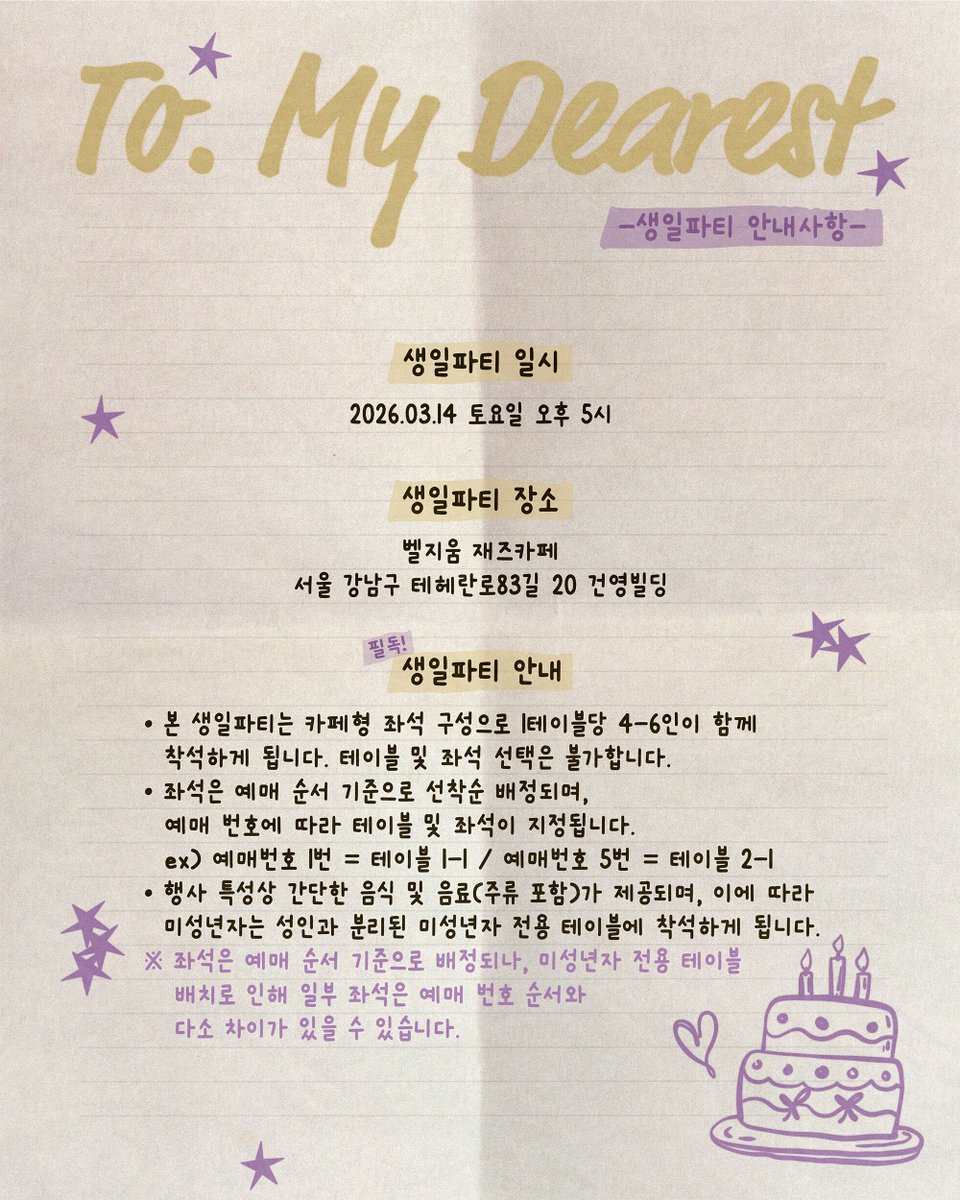 To. My Dearest
-생일파티 안내사항-
생일파티 일시
2026.03.14 토요일 오후 5시
생일파티 장소
벨지움 재즈카페
서울 강남구 테헤란로83길 20 건영빌딩
필독!
생일파티 안내
• 본 생일파티는 카페형 좌석 구성으로 1테이블당 4-6인이 함께
착석하게 됩니다. 테이블 및 좌석 선택은 불가합니다.
• 좌석은 예매 순서 기준으로 선착순 배정되며,
예매 번호에 따라 테이블 및 좌석이 지정됩니다.
ex) 예매번호 1번 = 테이블 1-1 / 예매번호 5번 = 테이블 2-1
• 행사 특성상 간단한 음식 및 음료(주류 포함)가 제공되며, 이에 따라
미성년자는 성인과 분리된 미성년자 전용 테이블에 착석하게 됩니다.
※ 좌석은 예매 순서 기준으로 배정되나, 미성년자 전용 테이블
배치로 인해 일부 좌석은 예매 번호 순서와
다소 차이가 있을 수 있습니다.